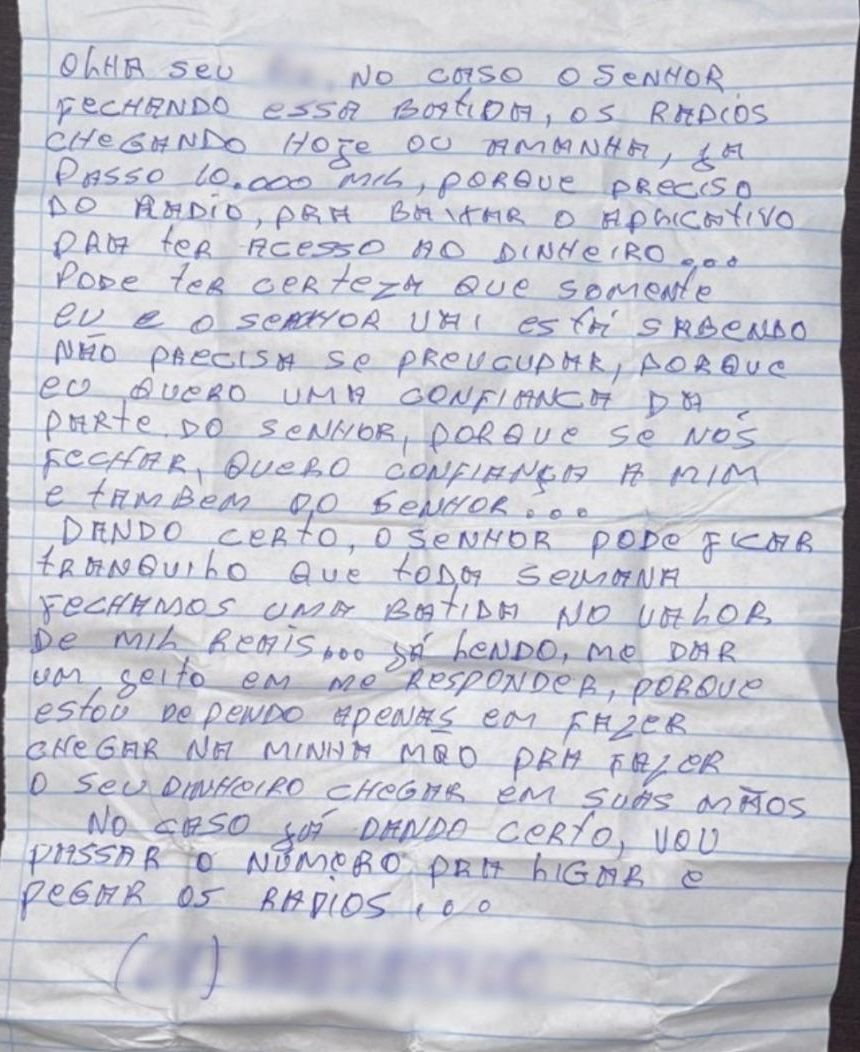 OLHA SEU NO CASO O SENHOR
FECHANDO ESSA BATIDA, OS RADIOS
CHEGANDO HOJE OU AMANHA, JA
PASSO 10.000 MIL, PORQUE PRECISO
DO RADIO, PRA BAIXAR O APLICATIVO
PRA TER ACESSO AO DINHEIRO...
PODE TER CERTEZA QUE SOMENTE
EU E O SENHOR VAI ESTÁ SABENDO
NÃO PRECISA SE PREUCUPAR, PORQUE
EU QUERO UMA CONFIANCA DA
PARTE DO SENHOR, PORQUE SE NÓS
FECHAR, QUERO CONFIANÇA A MIM
E TAMBEM DO SENHOR...
DANDO CERTO, O SENHOR PODE FICAR
TRANQUILO QUE TODA SEMANA
FECHAMOS UMA BATIDA NO VALOR
DE MIL REAIS... JÁ LENDO, ME DAR
UM JEITO EM ME RESPONDER, PORQUE
ESTOU DEPENDO APENAS EM FAZER
CHEGAR NA MINHA MÃO PRA FAZER
O SEU DINHEIRO CHEGAR EM SUAS MÃOS
NO CASO JÁ DANDO CERTO, VOU
PASSAR O NÚMERO PRA LIGAR E
PEGAR OS RADIOS...